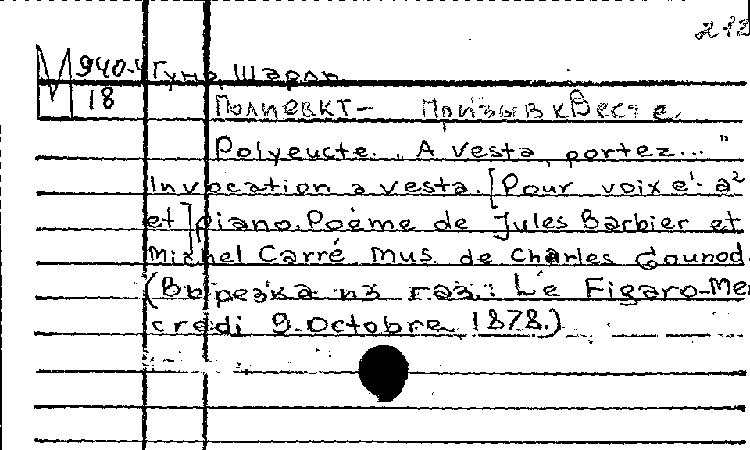 212
М 940-4 Гуно, Шарль.
18 Полиевкт- Призыв к Весте.
Polyeucte. „A Vesta, portez..."
Invocation a vesta. [Pour voix e!. a²
et] piano. Poème de Jules Barbier et
Michel Carré. Mus. de Charles Gounod.
(Вырезка из газ.: Le Figaro-Mer
credi 9. Octobre 1878.)